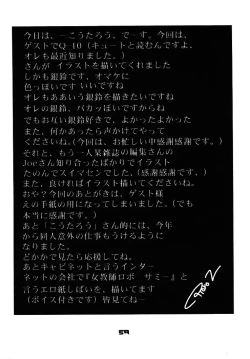 今日は、ーこうたろう、でーす。今回は、
ゲストでQ-10(キュートと読むんですよ、
オレも最近知りました。)
さんが イラストを描いてくれました
しかも銀鈴です、オマケに
色っぽいです いいですね
オレもああいう銀鈴を描きたいですね
オレの銀鈴、バカッぽいですからね
でもお互い銀鈴好きで、よかったよかった
また、何かあったら声かけてやって
くださいね。(今回は、お忙しい中感謝感謝です。)
それと、もう一人某雑誌の編集さんの
Joeさん知り合ったばかりでイラスト
たのんでスイマセンでした。(感謝感謝です。)
また、良ければイラスト描いてくださいね。
おや?今回のあとがきは、ゲスト様
えの手紙の用になってしまいました。(でも
本当に感謝です。)
あと「こうたろう」さん的には、今年
から同人意外の仕事もうけるように
なりました。
どかかで見たら応援してね。
あとキャビネットと言うインター
ネットの会社で『女教師ロボ サミー』と
言うエロ紙しばいを、描いてます
(ボイス付きです) 皆見てねー